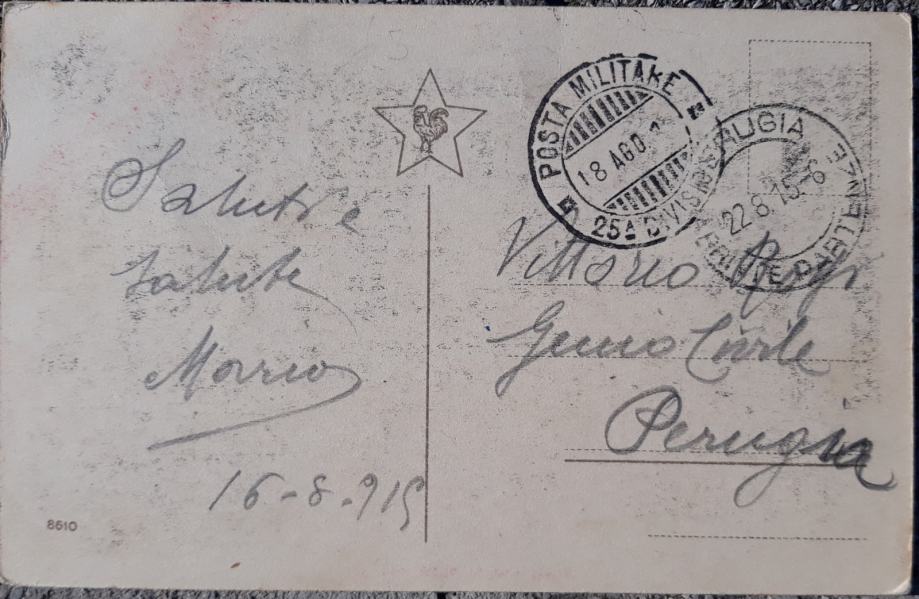 Saluti e
salute
Mario
16-8-915
8610
POSTA MILITARE
18 AGO
25A DIVISIONE
PERUGIA
22.8.15-6
PARTENZE
Vittorio
Genio Civile
Perugia